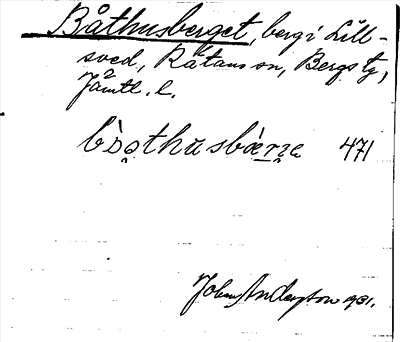 Båthusberget, berg i Lill-
sved, Rätans sn, Bergs tg,
Jämtl. l.
bòo̯thu sbæ̀rn̥e 471
John Anderson 1931.